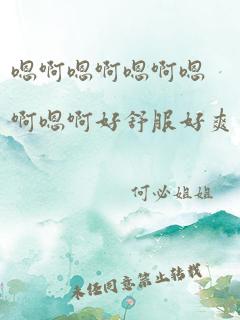 嗯啊嗯啊嗯啊嗯
啊嗯啊好舒服好爽
何必姐姐
未经同意禁止转载